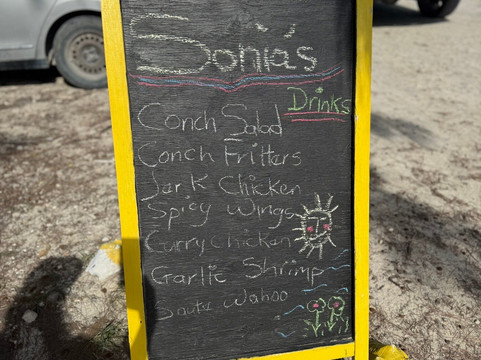 Sonia's
Drinks
Conch Salad
Conch Fritters
Jerk Chicken
Spicy Wings
Curry Chicken
Garlic Shrimp
Saute Wahoo